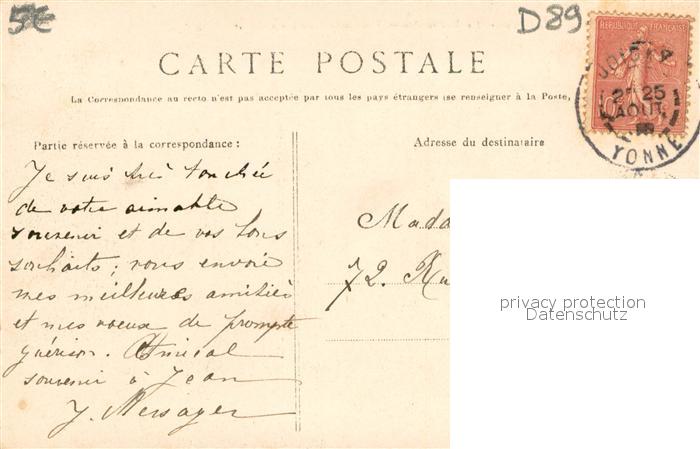 5€
D89
REPUBLIQUE FRANÇAISE
CARTE POSTALE
La Correspondance au recto n'est pas acceptée par tous les pays étrangers (se renseigner à la Poste,
JOIGNY
25
AOUT
YONNE
Partie réservée à la correspondance :
Adresse du destinataire
Je suis très touchée
de votre aimable
souvenir et de vos bons
souhaits; vous envoie
mes meilleures amitiés
et mes voeux de prompte
guérison. Amical
souvenir à Jean
J. Messager
Mada
72. Ru
privacy protection
Datenschutz